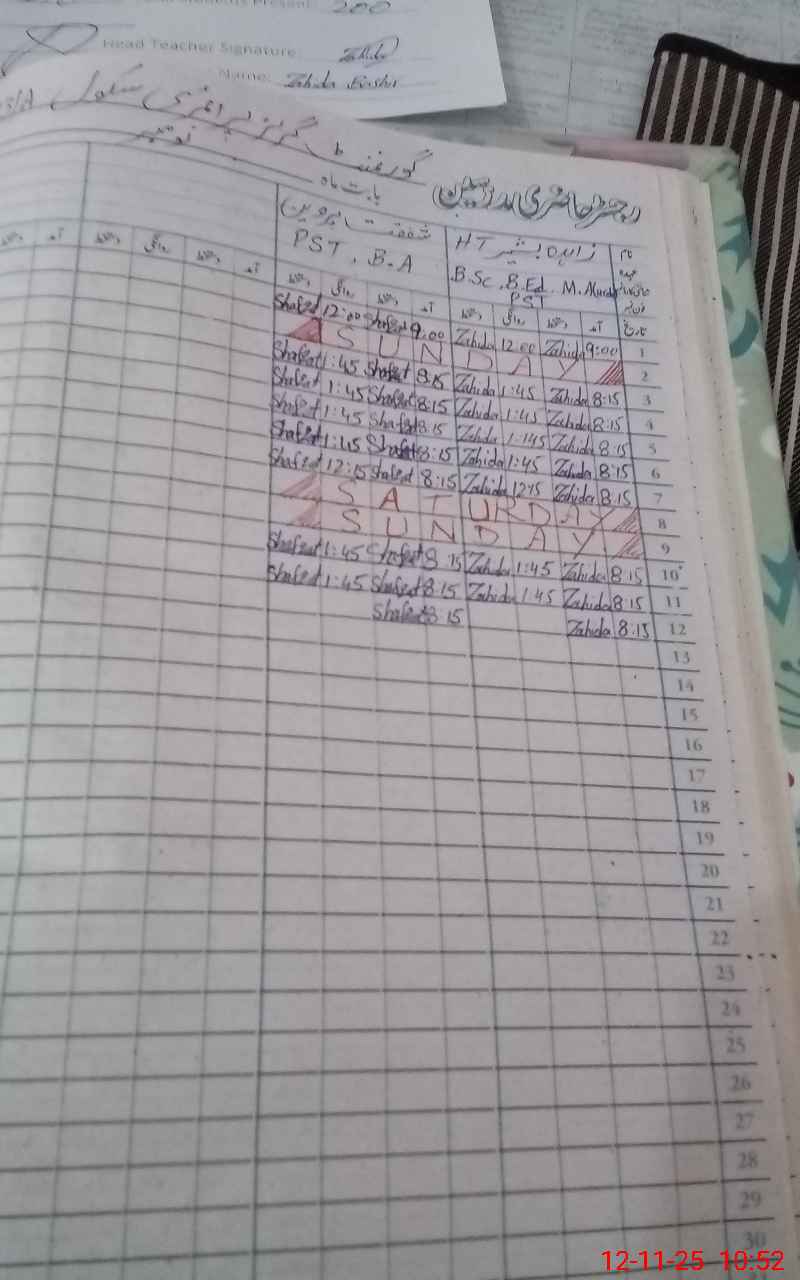 200
Head Teacher Signature: Zahida
Name: Zahida Bashir
رجسٹر حاضری مدرسین گورنمنٹ گرلز پرائمری سکول
بابت ماہ نومبر
نام زاہدہ بشیر HT شفقت پروین
عہدہ B.Sc, B.Ed, M. PST PST, B.A
تاریخ آمد دستخط روانگی دستخط آمد دستخط روانگی دستخط آمد دستخط روانگی دستخط آمد
1 9:00 Zahida 12:00 Zahida 9:00 Shafeat 12:00 Shafeat
2 SUNDAY
3 8:15 Zahida 1:45 Zahida 8:15 Shafeat 1:45 Shafeat
4 8:15 Zahida 1:45 Zahida 8:15 Shafeat 1:45 Shafeat
5 8:15 Zahida 1:45 Zahida 8:15 Shafeat 1:45 Shafeat
6 8:15 Zahida 1:45 Zahida 8:15 Shafeat 1:45 Shafeat
7 8:15 Zahida 12:15 Zahida 8:15 Shafeat 12:15 Shafeat
8 SATURDAY
9 SUNDAY
10 8:15 Zahida 1:45 Zahida 8:15 Shafeat 1:45 Shafeat
11 8:15 Zahida 1:45 Zahida 8:15 Shafeat 1:45 Shafeat
12 8:15 Zahida 8:15 Shafeat
13
14
15
16
17
18
19
20
21
22
23
24
25
26
27
28
29
30
12-11-25 10:52